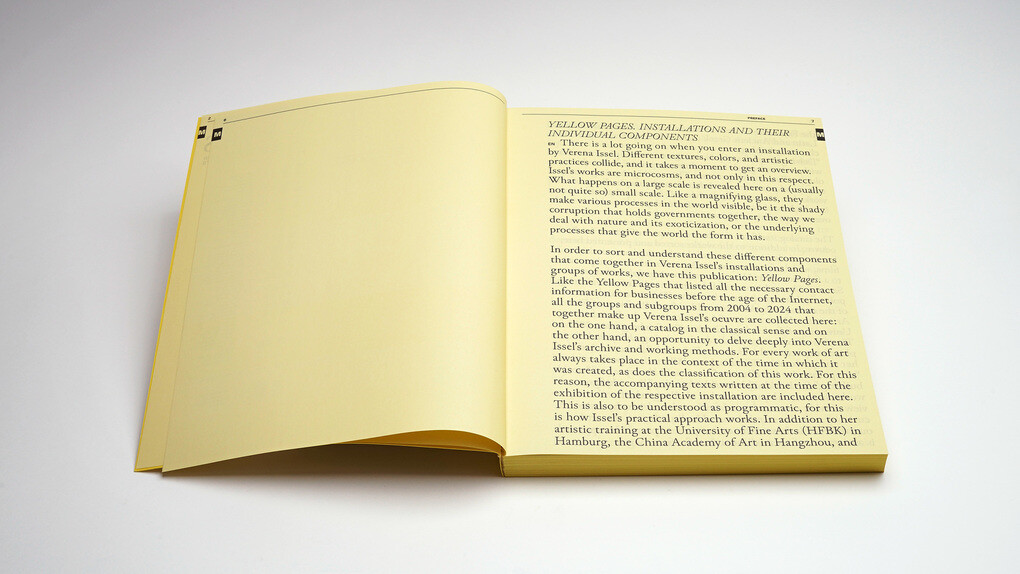 M
6
M
PREFACE
7
M
YELLOW PAGES. INSTALLATIONS AND THEIR
INDIVIDUAL COMPONENTS
EN There is a lot going on when you enter an installation
by Verena Issel. Different textures, colors, and artistic
practices collide, and it takes a moment to get an overview.
Issel's works are microcosms, and not only in this respect.
What happens on a large scale is revealed here on a (usually
not quite so) small scale. Like a magnifying glass, they
make various processes in the world visible, be it the shady
corruption that holds governments together, the way we
deal with nature and its exoticization, or the underlying
processes that give the world the form it has.
In order to sort and understand these different components
that come together in Verena Issel's installations and
groups of works, we have this publication: Yellow Pages.
Like the Yellow Pages that listed all the necessary contact
information for businesses before the age of the Internet,
all the groups and subgroups from 2004 to 2024 that
together make up Verena Issel's oeuvre are collected here:
on the one hand, a catalog in the classical sense and on
the other hand, an opportunity to delve deeply into Verena
Issel's archive and working methods. For every work of art
always takes place in the context of the time in which it
was created, as does the classification of this work. For this
reason, the accompanying texts written at the time of the
exhibition of the respective installation are included here.
This is also to be understood as programmatic, for this
is how Issel's practical approach works. In addition to her
artistic training at the University of Fine Arts (HFBK) in
Hamburg, the China Academy of Art in Hangzhou, and